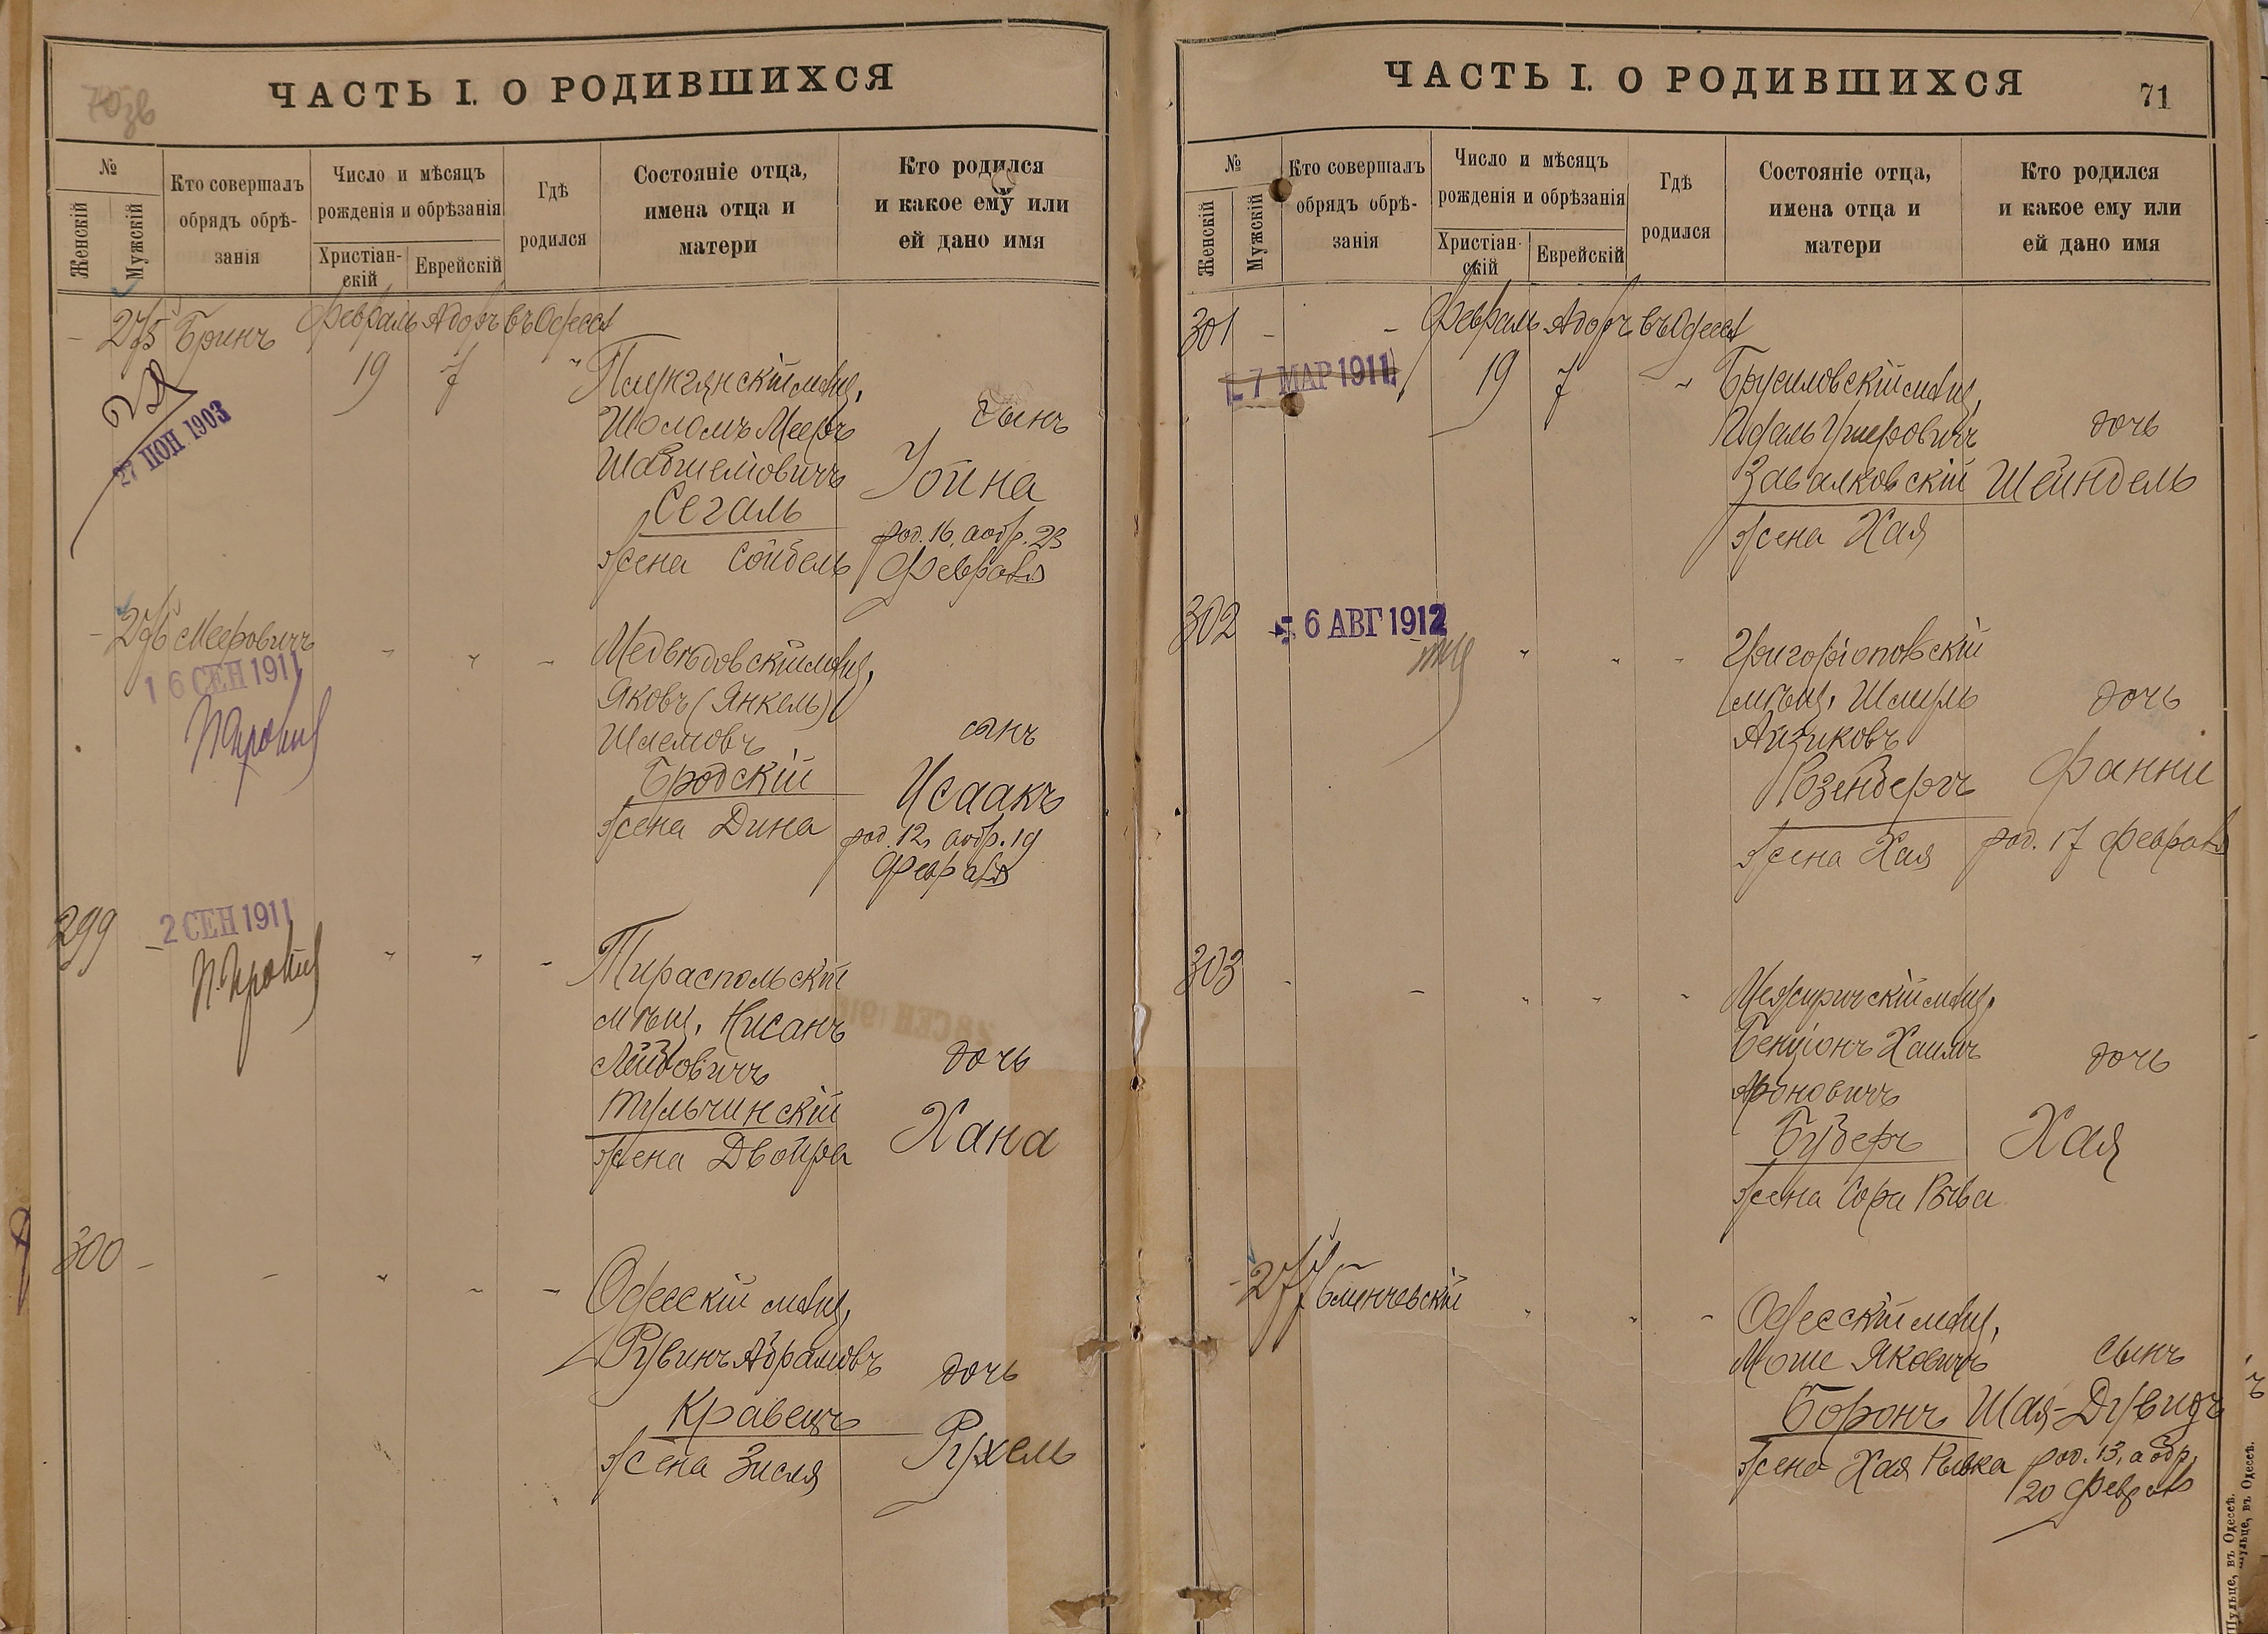 70 зв
ЧАСТЬ I. О РОДИВШИХСЯ
№
Женскій
Мужскій
Кто совершалъ
обрядъ обрѣ-
занія
Число и мѣсяцъ
рожденія и обрѣзанія
Христіан-
скій
Еврейскій
Гдѣ
родился
Состояніе отца,
имена отца и
матери
Кто родился
и какое ему или
ей дано имя
- 275 Бринъ Февраль Адоръ въ Одессѣ
19 7 "
27 1903
мѣщ.
Шоломъ Мееръ
сынъ
Сегаль
Іойна
жена Сойбель
род. 16, а обр. 23
Февраля
- 276 Мееровичъ " " -
16 СЕН 1911
Медвѣдовскій мѣщ.
Яковъ (Янкель)
Шлемовъ
сынъ
Бродскій
Исаакъ
жена Дина
род. 12, а обр. 19
Февраля
299 - " " -
2 СЕН 1911
Тираспольскій
мѣщ. Нисанъ
Лейбовичъ
дочь
Тульчинскій
Хана
жена Двойра
300 - - " - -
Одесскій мѣщ.
Рувинъ Абрамовъ
дочь
Кравецъ
Рухель
жена Зисля
ЧАСТЬ I. О РОДИВШИХСЯ
71
№
Женскій
Мужскій
Кто совершалъ
обрядъ обрѣ-
занія
Число и мѣсяцъ
рожденія и обрѣзанія
Христіан-
скій
Еврейскій
Гдѣ
родился
Состояніе отца,
имена отца и
матери
Кто родился
и какое ему или
ей дано имя
301 - - Февраль Адоръ въ Одессѣ
19 7 "
7 МАР 1911
Брусиловскій мѣщ.
дочь
Завалковскій
Шейндель
жена Хая
302 - " " -
6 АВГ 1912
Григоріопольскій
мѣщ. Шмиль
дочь
Айзиковъ
Розенбергъ
Фанни
жена Хая
род. 17 Февраля
303 - - " " "
Межиричскій мѣщ.
Бенціонъ Хаимъ
дочь
Ароновичъ
Будеръ
Хая
жена Сора Рива
- 277 Блинчевскій " " -
Одесскій мѣщ.
Моше Яковичъ
сынъ
Боронъ
Шая-Дувидъ
жена Хая Рывка
род. 13, а обр.
20 Февраля
Шульце, въ Одессѣ.
Шульце, въ Одессѣ.